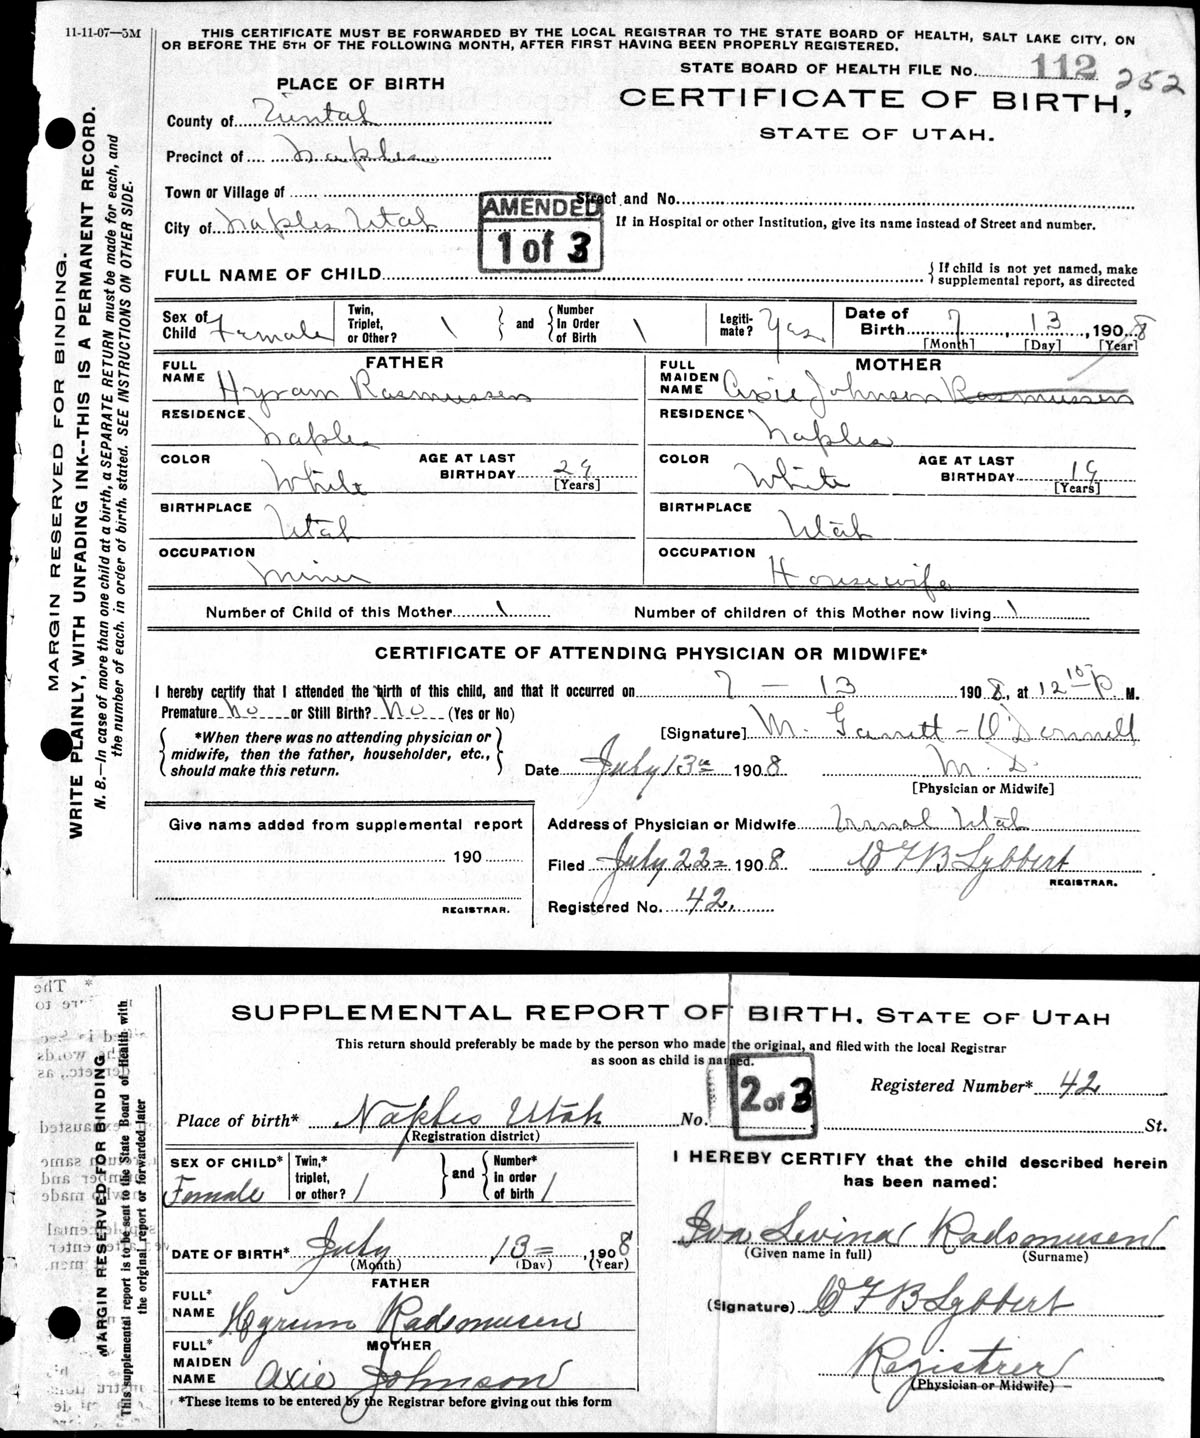 11-11-07—5M
THIS CERTIFICATE MUST BE FORWARDED BY THE LOCAL REGISTRAR TO THE STATE BOARD OF HEALTH, SALT LAKE CITY, ON
OR BEFORE THE 5TH OF THE FOLLOWING MONTH, AFTER FIRST HAVING BEEN PROPERLY REGISTERED.
STATE BOARD OF HEALTH FILE No. 112 252
PLACE OF BIRTH
CERTIFICATE OF BIRTH,
STATE OF UTAH.
County of Uintah
Precinct of Naples
Town or Village of
Street and No.
City of Naples Utah
AMENDED
1 of 3
If in Hospital or other Institution, give its name instead of Street and number.
FULL NAME OF CHILD
{If child is not yet named, make
supplemental report, as directed
Sex of Child Female
Twin, Triplet, or Other? 1
and
Number In Order of Birth 1
Legiti- mate? Yes
Date of Birth 7, 13, 1908
[Month] [Day] [Year]
FATHER
MOTHER
FULL NAME Hyram Rasmussen
FULL MAIDEN NAME Axie Johnson Rasmussen
RESIDENCE Naples
RESIDENCE Naples
COLOR White AGE AT LAST BIRTHDAY 29 [Years]
COLOR White AGE AT LAST BIRTHDAY 19 [Years]
BIRTHPLACE Utah
BIRTHPLACE Utah
OCCUPATION Miner
OCCUPATION Housewife
Number of Child of this Mother 1
Number of children of this Mother now living 1
CERTIFICATE OF ATTENDING PHYSICIAN OR MIDWIFE*
I hereby certify that I attended the birth of this child, and that it occurred on 7 — 13 1908, at 12 10 P. M.
Premature No or Still Birth? No (Yes or No)
*When there was no attending physician or
midwife, then the father, householder, etc.,
should make this return.
[Signature] M. Garrett-O'Donnell
Date July 13th 1908 M. D.
[Physician or Midwife]
Give name added from supplemental report
190
REGISTRAR.
Address of Physician or Midwife Vernal Utah
Filed July 22 1908 W F B Lybbert
REGISTRAR.
Registered No. 42.
MARGIN RESERVED FOR BINDING.
WRITE PLAINLY, WITH UNFADING INK--THIS IS A PERMANENT RECORD.
N. B.—In case of more than one child at a birth, a SEPARATE RETURN must be made for each, and
the number of each, in order of birth, stated. SEE INSTRUCTIONS ON OTHER SIDE.
SUPPLEMENTAL REPORT OF BIRTH, STATE OF UTAH
This return should preferably be made by the person who made the original, and filed with the local Registrar
as soon as child is named.
2 of 3
Registered Number* 42
Place of birth* Naples Utah No. St.
(Registration district)
SEX OF CHILD* Female
Twin,* triplet, or other? 1
and
Number* in order of birth 1
I HEREBY CERTIFY that the child described herein
has been named:
Iva Levina Radsmusen
(Given name in full) (Surname)
DATE OF BIRTH* July 13, 1908
(Month) (Day) (Year)
FATHER
FULL* NAME Hyrum Radsmusen
(Signature) W F B Lybbert
MOTHER
FULL* MAIDEN NAME Axie Johnson
Registrer
(Physician or Midwife)
*These items to be entered by the Registrar before giving out this form
MARGIN RESERVED FOR BINDING
This supplemental report is to be sent to the State Board of Health with
the original report or forwarded later